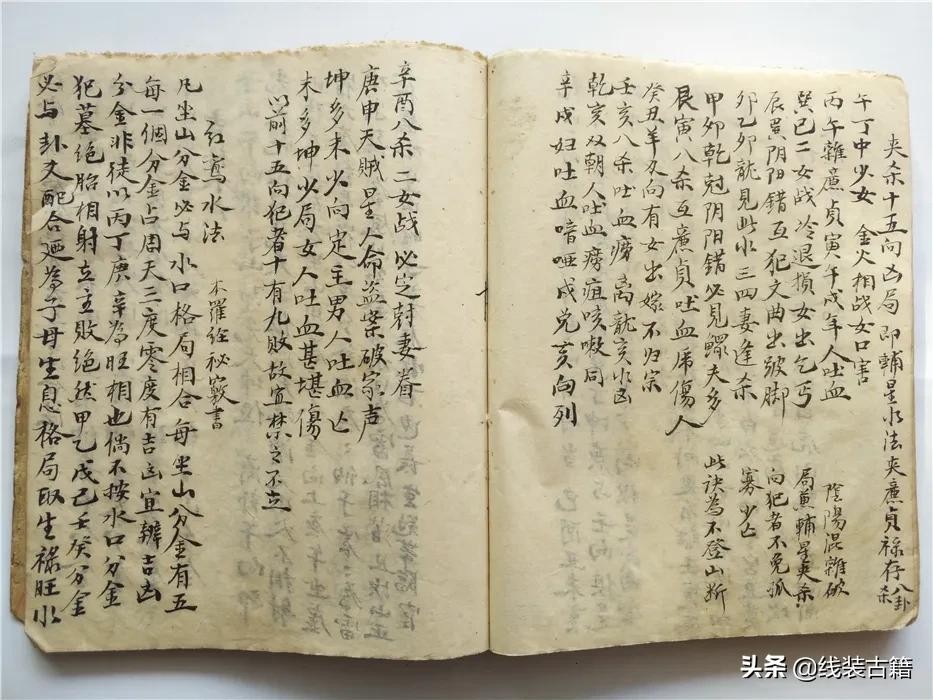 夹杀十五向凶局即輔星水法夹廉貞祿存八卦杀
午丁中少女 金火相战女口害
丙午雜廣貞寅午戌年人吐血 陰陽混雜破
巽巳二女战冷退損女出乞丐 局兼輔星夹杀
辰巽阴阳錯互犯文曲出跛脚 向犯者不免孤
卯乙卯龍見此水三四妻逢杀 寡少亡
甲卯乾尅阴阳錯必見鰥夫多
艮寅八杀互廉貞吐血席傷人 此訣為不登山断
癸丑羊刃向有女出嫁不归宗
壬亥八杀吐血癆离龍亥水凶
乾亥双朝人吐血癆疽咳嗽同
辛戌妇吐血喑哑戌兑亥向列
辛酉八杀二女战必定尅妻眷
庚申天贼星人命盗案破家声
坤多未少向定主男人吐血亡
未多坤少局女人吐血甚堪傷
以前十五向犯者十有九败故宜禁之不立
红鸾水法 本羅経祕竅書
凡坐山分金必与水口格局相合每坐山分金有五
每一個分金占周天三度零度有吉凶宜辨吉凶
分金非徒以丙丁庚辛為旺相也倘不按水口分金
犯墓绝胎相射立主败绝然甲乙戊己壬癸分金
必与卦爻配合廼為子母生息格局取生祿旺水
头条 @线装古籍